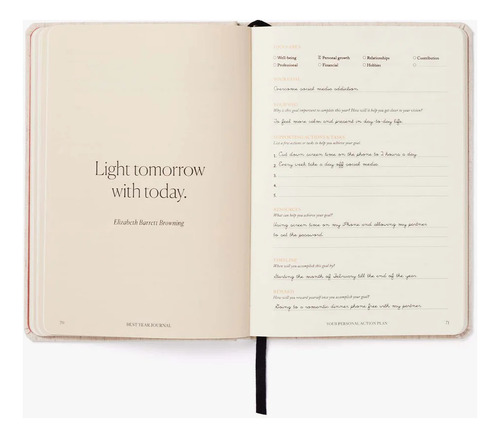 Light tomorrow
with today.
Elizabeth Barrett Browning
BEST YEAR JOURNAL
Well-being
Personal growth
Relationships
Contribution
Professional
Financial
Hobbies
Overcome social media addiction.
Why is this goal important to complete this year? How will it help you get closer to your vision?
To feel more calm and present in day-to-day life.
List a few actions or tasks to help you achieve your goal:
1. Cut down screen time on the phone to 2 hours a day.
2. Every week take a day off social media.
3.
4.
5.
What can help you achieve your goal?
Using screen time on my Phone and allowing my partner
to set the password.
TIMELINE
When will you accomplish this goal by?
Starting the month of February till the end of the year.
REWARD
How will you reward yourself once you accomplish your goal?
Going to a romantic dinner phone free with my partner.
YOUR PERSONAL ACTION PLAN
71